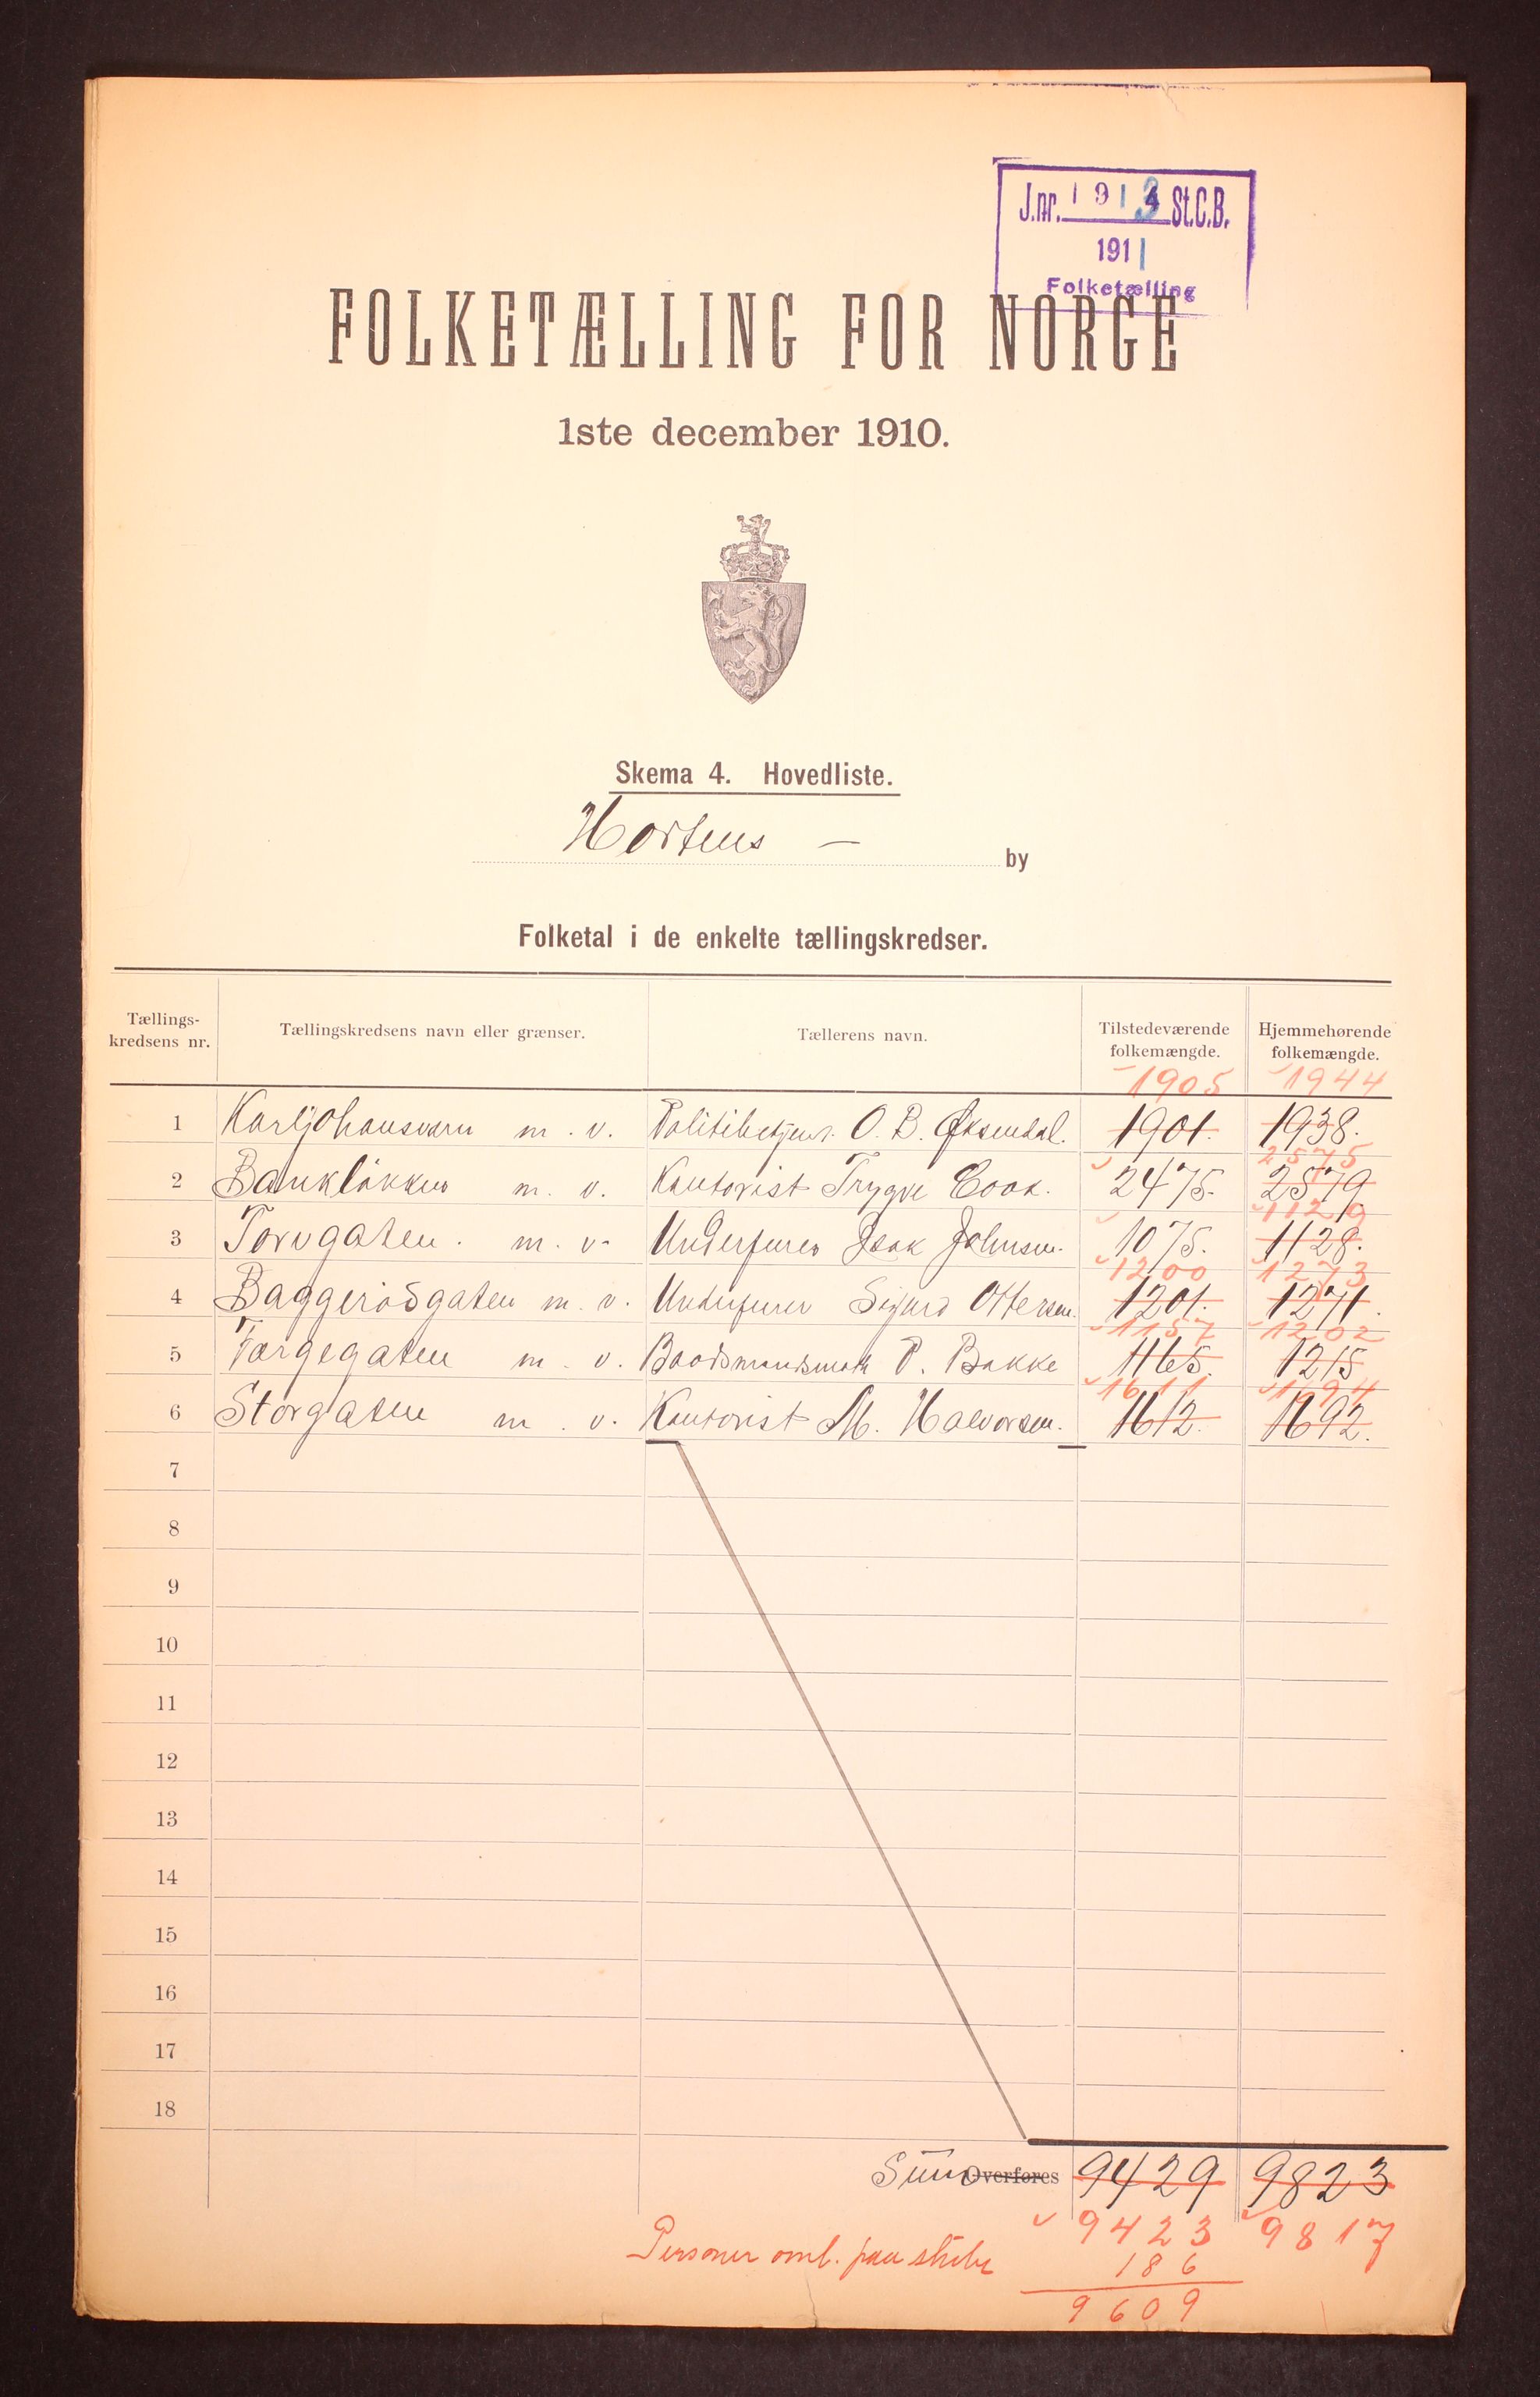 J.nr. 1913 St.C.B.
1911
Folketælling
FOLKETÆLLING FOR NORGE
1ste december 1910.
Skema 4. Hovedliste.
Hortens — by
Folketal i de enkelte tællingskredser.
Tællings-kredsens nr. Tællingskredsens navn eller grænser. Tællerens navn. Tilstedeværende folkemængde. Hjemmehørende folkemængde.
1905 1944
1 Karljohansværn m. v. Politibetjent. O. B. Øksendal. 1901. 1938.
2575
2 Bankløkken m. v. Kontorist Trygve Cook. 2475. 2579
1129
3 Torvgaten. m. v. Underfurer Isak Johnsen. 1075. 1128.
1200 1273
4 Baggerødgaten m. v. Underfurer Sigurd Ottersen. 1201. 1271.
1157 1202
5 Færgegaten m. v. Baadsmandsmath P. Bakke 1165. 1215
1611 1694
6 Storgaten m. v. Kontorist M. Halvorsen. 1612. 1692.
7
8
9
10
11
12
13
14
15
16
17
18
Sum Overføres 9429 9823
9423 9817
Personer omb. paa skibe 186
9609